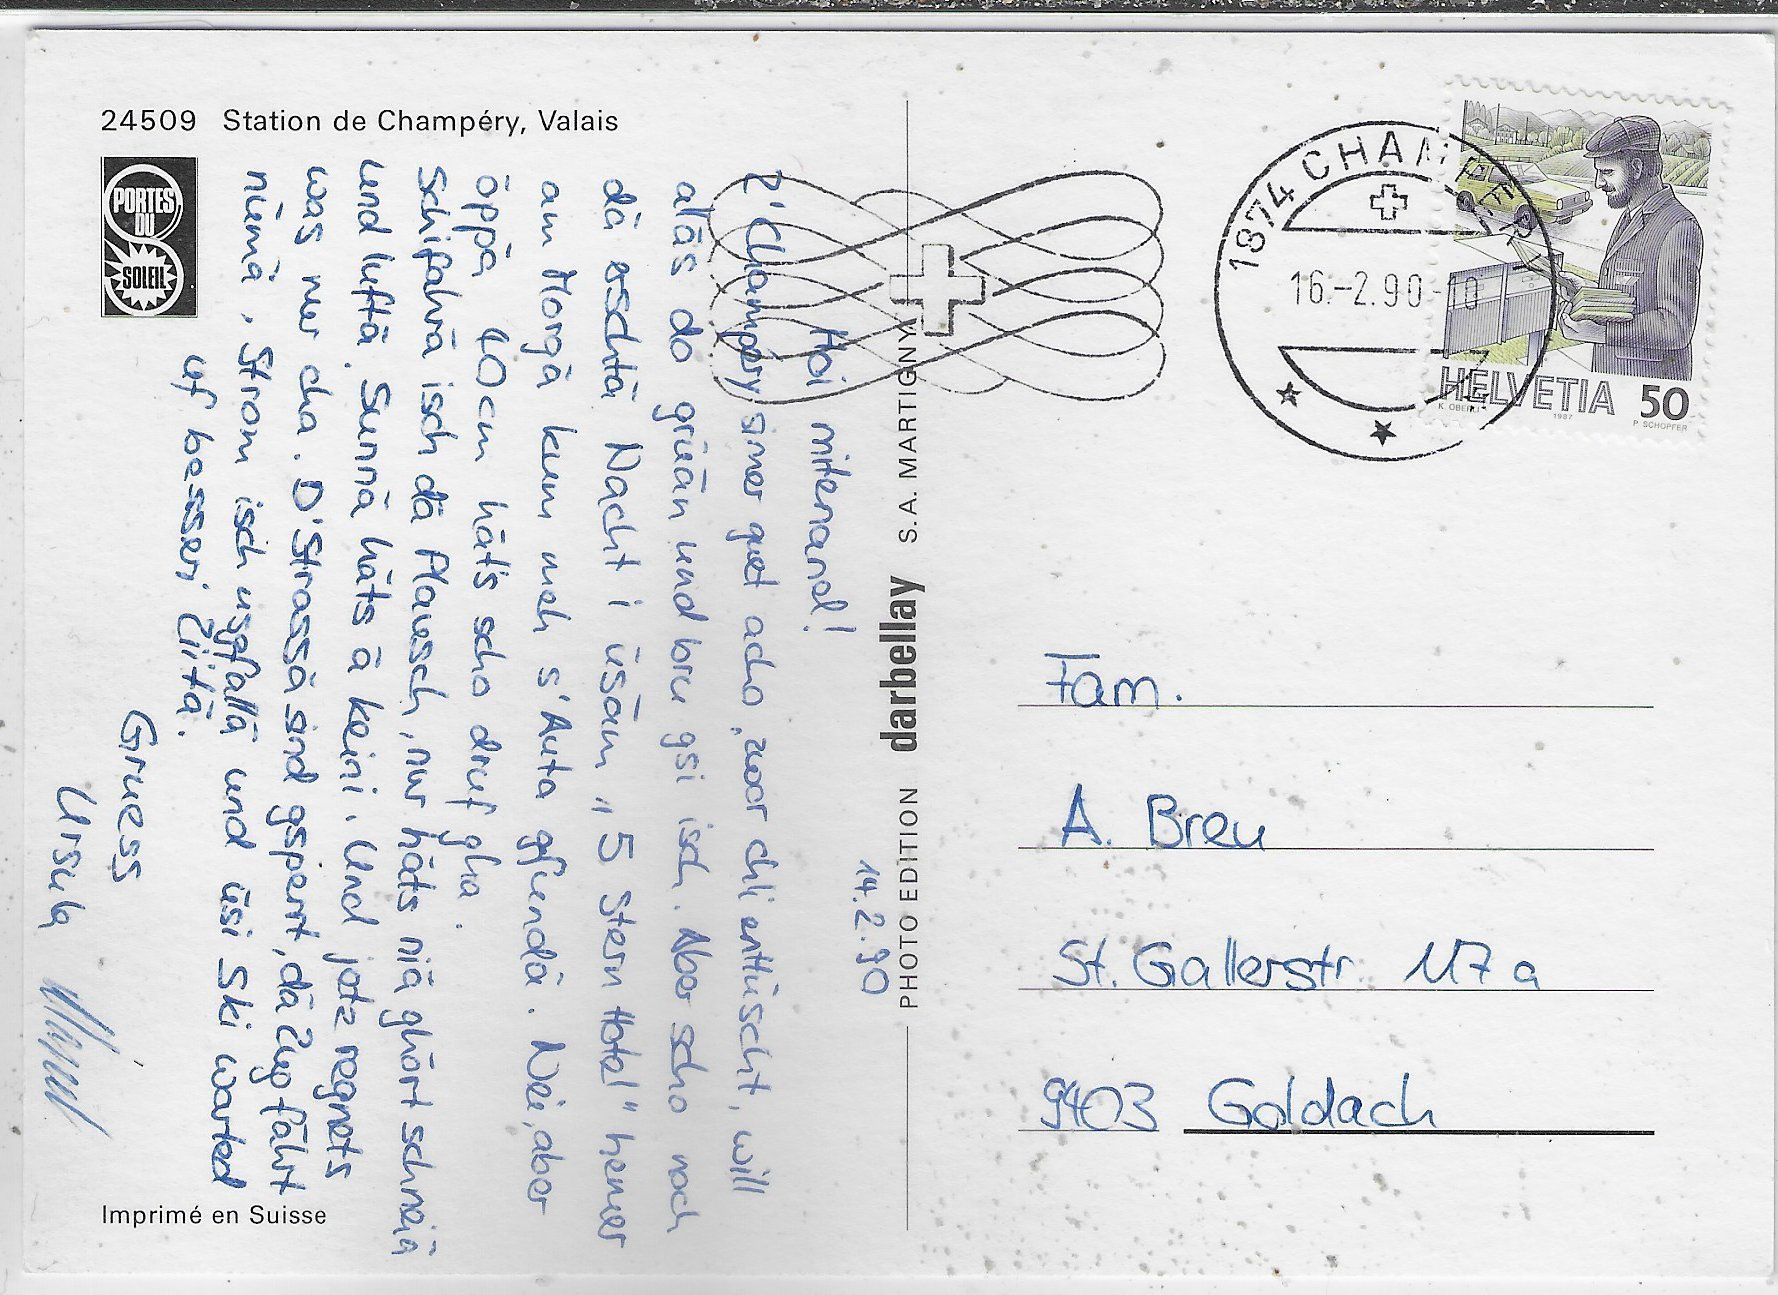 24509 Station de Champéry, Valais
PORTES
DU
SOLEIL
14.2.90
Hoi mitenand!
Z'Champéry simer guet acho, zwar chli enttüscht, will
aläs do grüän und bru gsi isch. Aber scho noch
dä erschtä Nacht i üsäm "5 Stern Hotel" hemer
am Morgä kum meh s'Auto gfundä. Nei, aber
öppä 40cm häts scho druf gha.
Schifahrä isch dä Plausch, nur häts niä ghört schneiä
und luftä. Sunnä häts ä keini. Und jetz regnets
was nur cha. D'Strassä sind gsperrt, dä Zug fährt
nümä, Strom isch usgfallä und üsi Ski warted
uf besseri Ziitä.
Gruess
Ursula
Imprimé en Suisse
PHOTO EDITION darbellay S.A. MARTIGNY
1874 CHAMPÉRY
16.-2.90-10
HELVETIA 50
K. OBERLI
1987
P SCHOPFER
Fam.
A. Breu
St. Gallerstr. 117 a
9403 Goldach